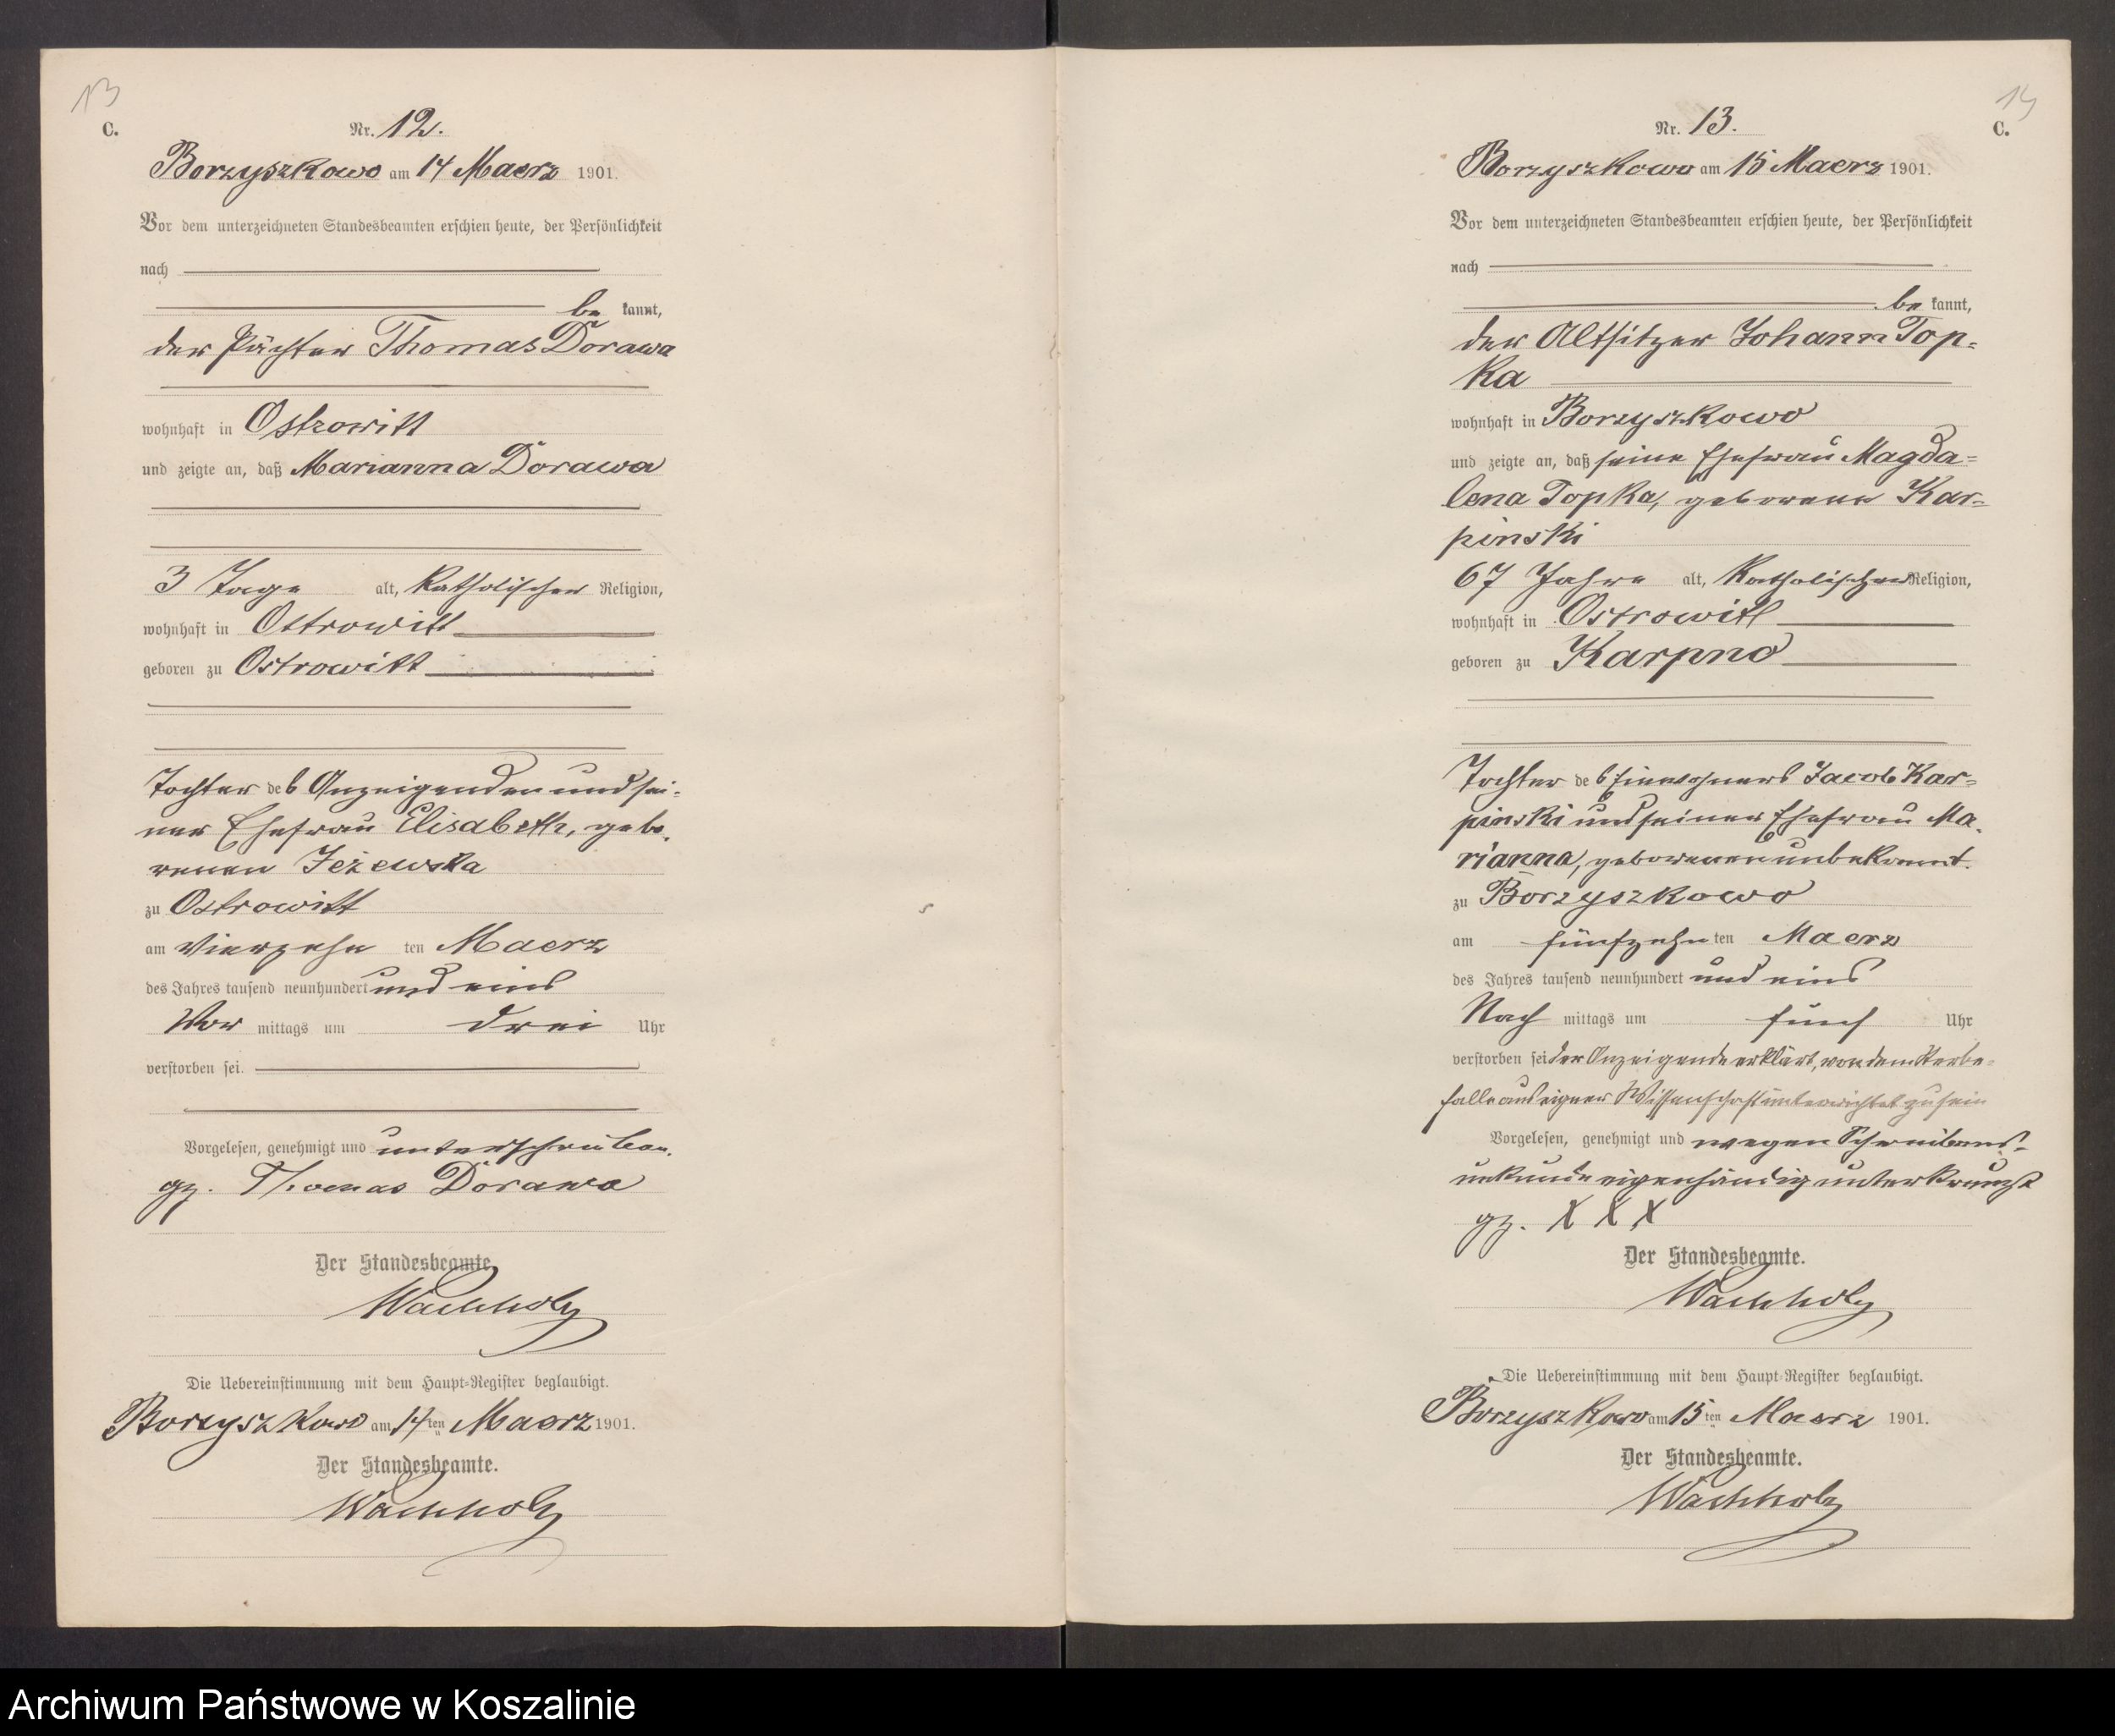 13
C.
Nr. 12.
Borzyszkowo am 14 Maerz 1901.
Vor dem unterzeichneten Standesbeamten erschien heute, der Persönlichkeit
nach
be kannt,
der Pächter Thomas Dorawa
wohnhaft in Ostrowitt
und zeigte an, daß Marianna Dorawa
3 Tage alt, katholischer Religion,
wohnhaft in Ostrowitt
geboren zu Ostrowitt
Tochter des Anzeigenden und sei-
ner Ehefrau Elisabeth, gebo-
renen Jeżewska
zu Ostrowitt
am vierzehn ten Maerz
des Jahres tausend neunhundert und eins
Vor mittags um drei Uhr
verstorben sei.
Vorgelesen, genehmigt und unterschrieben.
gz. Thomas Dorawa
Der Standesbeamte
Wachholz
Die Uebereinstimmung mit dem Haupt-Register beglaubigt.
Borzyszkowo am 14ten Maerz 1901.
Der Standesbeamte.
Wachholz
14
C.
Nr. 13.
Borzyszkowo am 15 Maerz 1901.
Vor dem unterzeichneten Standesbeamten erschien heute, der Persönlichkeit
nach
be kannt,
der Altsitzer Johann Top-
ka
wohnhaft in Borzyszkowo
und zeigte an, daß seine Ehefrau Magda-
lena Topka, geborene Kar-
pinski
67 Jahre alt, katholischer Religion,
wohnhaft in Ostrowitt
geboren zu Karpno
Tochter des Einwohners Jacob Kar-
pinski und seiner Ehefrau Ma-
rianna, geborenen unbekannt.
zu Borzyszkowo
am fünfzehn ten Maerz
des Jahres tausend neunhundert und eins
Nach mittags um fünf Uhr
verstorben sei der Anzeigende erklärt, von dem Sterbe-
falle aus eigner Wissenschaft unterrichtet zu sein
Vorgelesen, genehmigt und wegen Schreibens-
unkunde eigenhändig unterkreuzt
gz. X X X
Der Standesbeamte.
Wachholz
Die Uebereinstimmung mit dem Haupt-Register beglaubigt.
Borzyszkowo am 15ten Maerz 1901.
Der Standesbeamte.
Wachholz
Archiwum Państwowe w Koszalinie